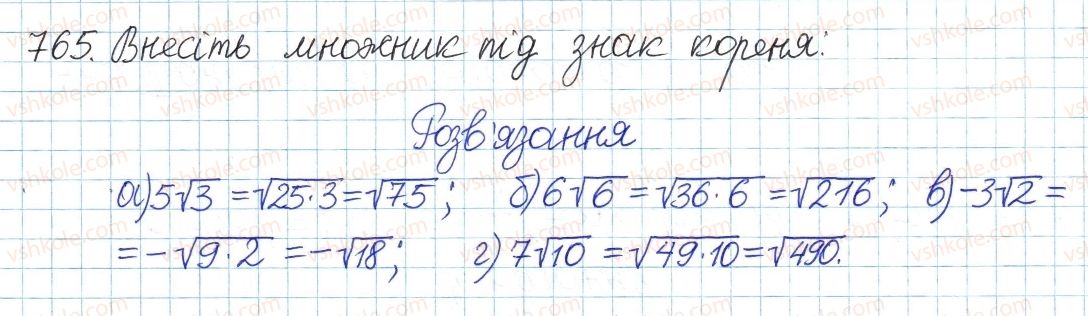 765. Внесіть множник під знак кореня:
Розв'язання
а) 5√3 = √25·3 = √75; б) 6√6 = √36·6 = √216; в) -3√2 =
= -√9·2 = -√18; г) 7√10 = √49·10 = √490.